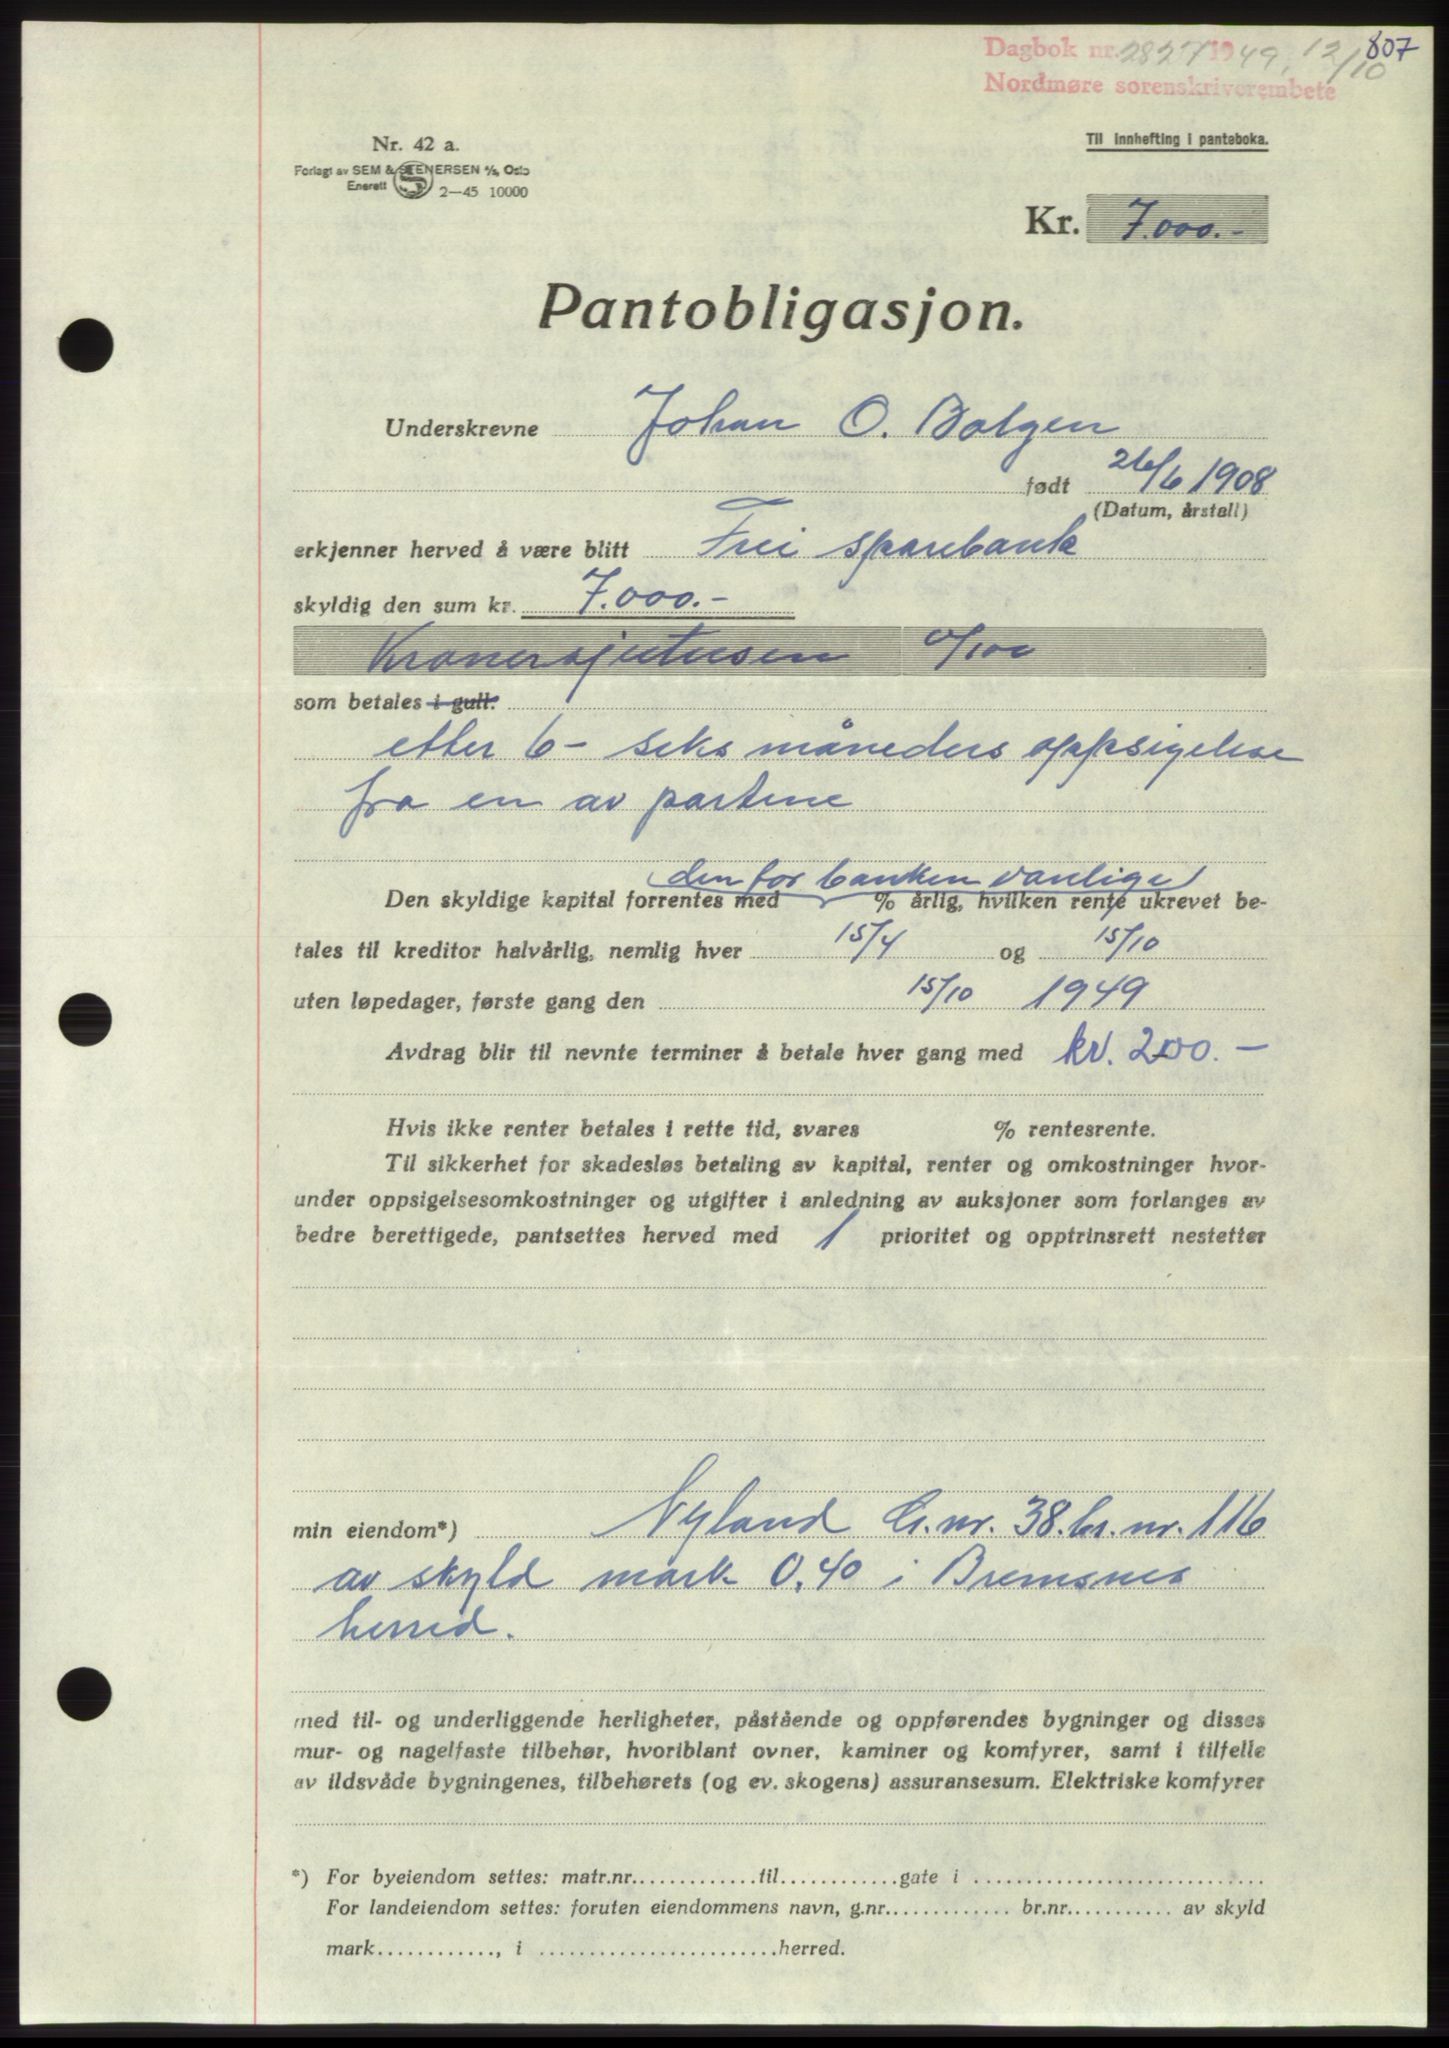 807
Dagbok nr. 2827 1949, 12/10
Nordmøre sorenskriverembete
Nr. 42 a.
Til innhefting i panteboka.
Forlagt av SEM & STENERSEN A/S, Oslo
Enerett 2—45 10000
Kr. 7.000.-
Pantobligasjon.
Underskrevne Johan O. Bolgen
født 26/6 1908
(Datum, årstall)
erkjenner herved å være blitt Frei sparebank
skyldig den sum kr. 7.000.-
Kronersjutusen 0/100
som betales i gull.
etter 6 - seks måneders oppsigelse
fra en av partene
den for banken vanlige
Den skyldige kapital forrentes med % årlig, hvilken rente ukrevet be-
tales til kreditor halvårlig, nemlig hver 15/4 og 15/10
uten løpedager, første gang den 15/10 1949
Avdrag blir til nevnte terminer å betale hver gang med kr. 200.—
Hvis ikke renter betales i rette tid, svares % rentesrente.
Til sikkerhet for skadesløs betaling av kapital, renter og omkostninger hvor-
under oppsigelsesomkostninger og utgifter i anledning av auksjoner som forlanges av
bedre berettigede, pantsettes herved med 1 prioritet og opptrinsrett nestetter
min eiendom*) Nyland G.nr. 38. br. nr. 116
av skyld mark 0,40 i Bremsnes
herred.
med til- og underliggende herligheter, påstående og oppførendes bygninger og disses
mur- og nagelfaste tilbehør, hvoriblant ovner, kaminer og komfyrer, samt i tilfelle
av ildsvåde bygningenes, tilbehørets (og ev. skogens) assuransesum. Elektriske komfyrer
*) For byeiendom settes: matr.nr.............til.............gate i .............................
For landeiendom settes: foruten eiendommens navn, g.nr............. br.nr........... av skyld
mark............, i ........................herred.